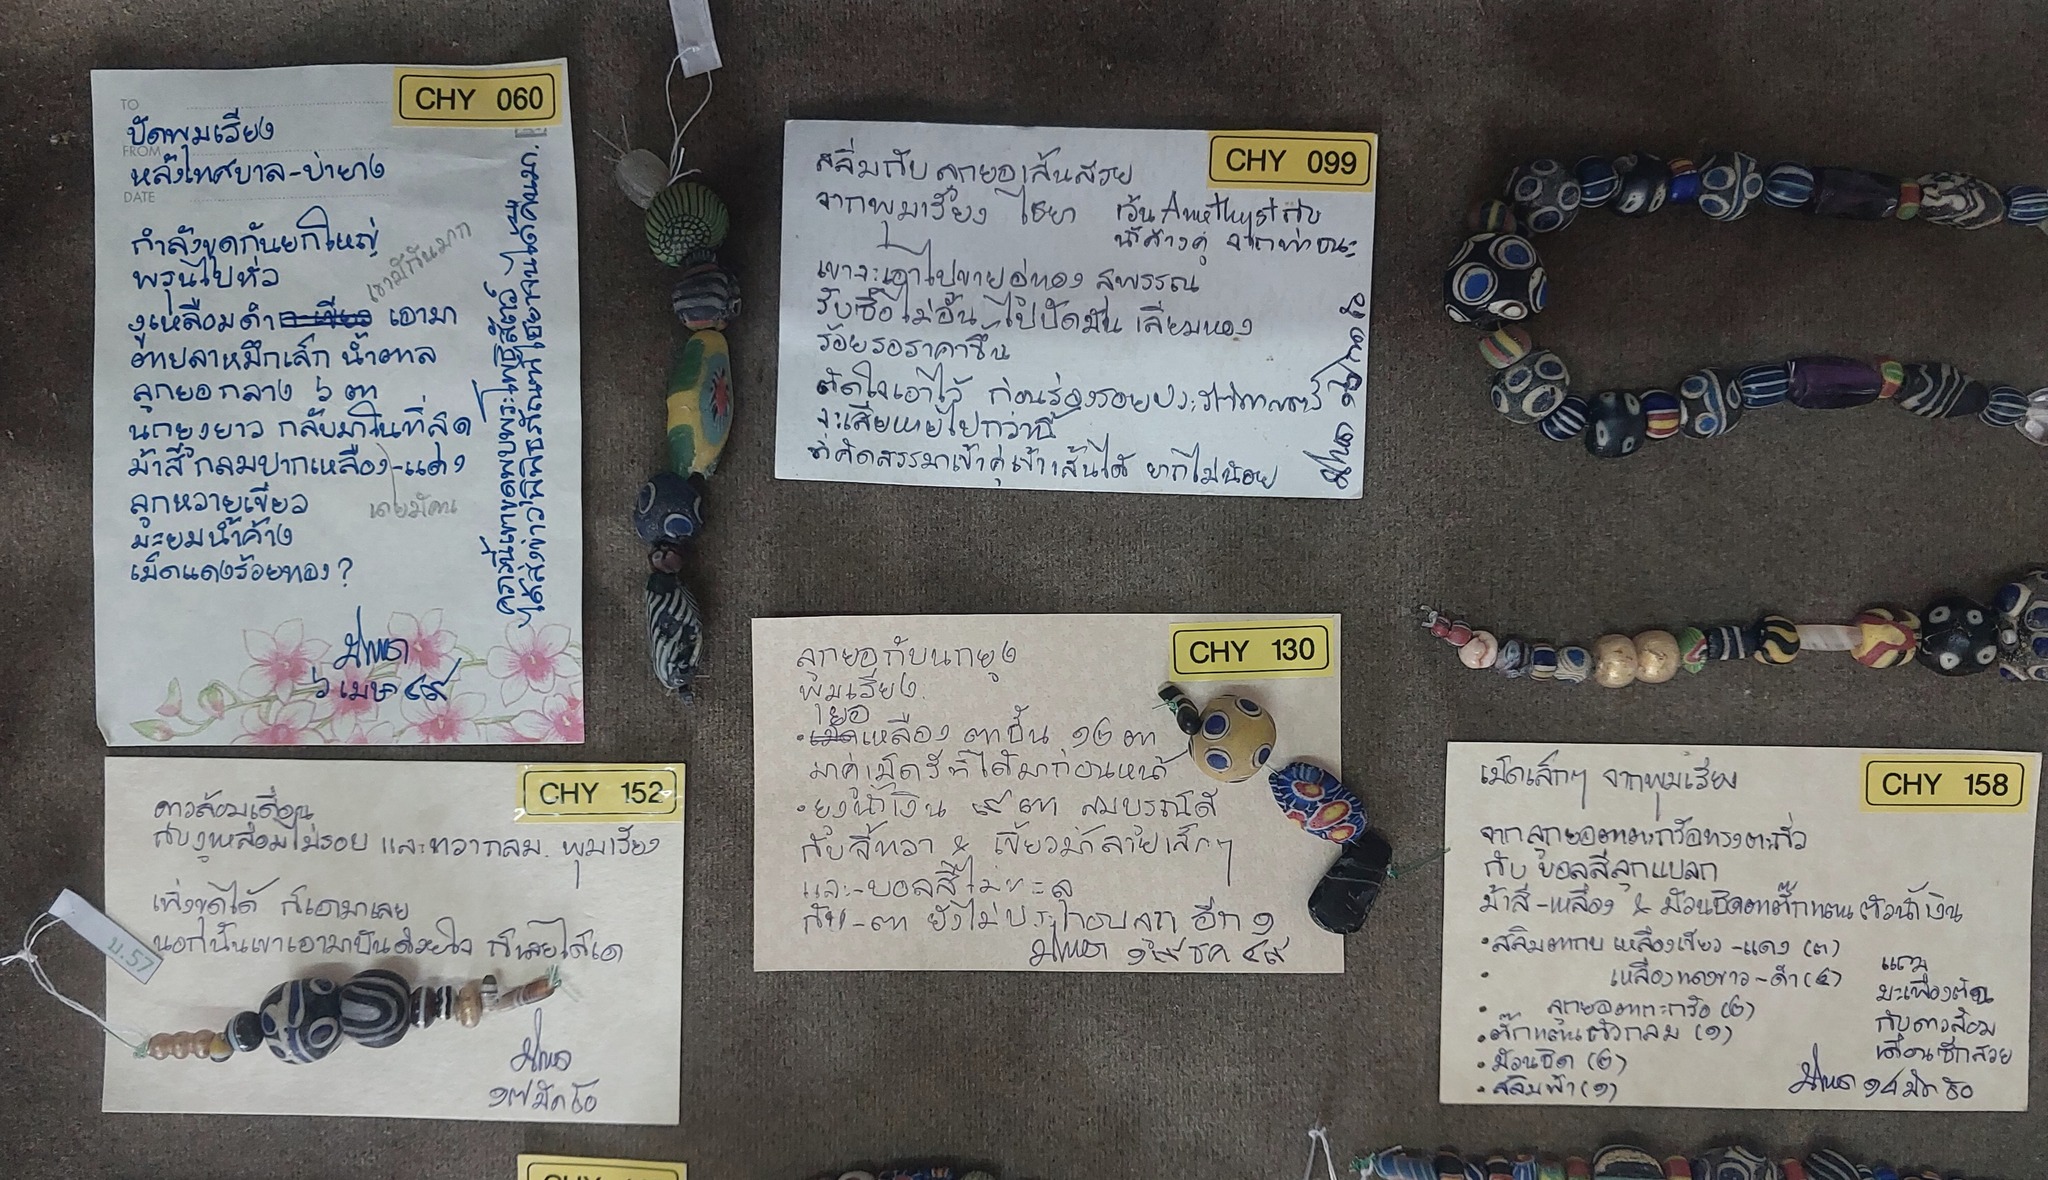 CHY 060
TO
ปัดพุมเรียง
FROM
หลังเทศบาล-ป่ายาง
DATE
กำลังขุดกันยกใหญ่
พรุนไปทั่ว
เขามีกันมาก
งูเหลือมดำ เอามา
ตาปลาหมึกเล็ก น้ำตาล
ลูกยอกลาง ๖ ตา
นกยูงยาว กลับมาในที่สุด
ม้าสีกลมปากเหลือง-แดง
ลูกหวายเขียว
เคยมีคน
มะยมน้ำค้าง
เม็ดแดงร้อยทอง?
๖ เมษา ๔๙
คราวนี้เขาขุดพบพระโพธิสัตว์
CHY 099
สลิ่มกับลูกยอเส้นสวย
จากพุมเรียง ไชยา เว้น Amethyst กับ
น้ำค้างคู่ จากท่าชนะ
เขาจะเอาไปขายอู่ทอง สุพรรณ
รับซื้อไม่อั้น ไปปัดฝุ่น เลี่ยมทอง
ร้อยรอราคาขึ้น
ตัดใจเอาไว้ ก่อนร่องรอยประวัติศาสตร์
จะเสียหายไปกว่านี้
ที่คัดสรรมาเข้าคู่เข้าเส้นได้ ยากไม่น้อย
CHY 130
ลูกยอกับนกยูง
พุมเรียง
ยอ
เหลือง ตาชั้น ๑๒ ตา
มาคู่เม็ดรีที่ได้มาก่อนหน้า
ยูงน้ำเงิน ๙ ตา สมบูรณ์ดี
กับสี่ทวา & เขียวม้าลายเล็กๆ
และ-บอลสี
กับ-ตา ยังไม่ประกอบลูก อีก ๑
๑๙ ธค ๔๙
CHY 152
ดาวล้อมเดือน
กับงูเหลือมไม่รอย และทวากลม พุมเรียง
เพิ่งขุดได้ ก็เอามาเลย
นอกนั้นเขาเอามาปันด้วยใจ
ม.57
๑๗ มีค ๕๐
CHY 158
เม็ดเล็กๆ จากพุมเรียง
จากลูกยอตาตะกร้อทรงตะกั่ว
กับ บอลสีลูกแปลก
ม้าสี-เหลือง & ม้วนธิดตาตั๊กแตนตัวน้ำเงิน
• สลิมตากบ เหลืองเขียว-แดง (๓)
• เหลืองแดงขาว-ดำ (๔)
• ลูกยอตาตะกร้อ (๒)
• ตั๊กแตนตัวกลม (๑)
• ม้วนธิด (๒)
• สลิมฟ้า (๑)
แถม
มะเฟืองตัน
กับดาวล้อม
เดือนซีกสวย
๑๘ มีค ๕๐
CHY